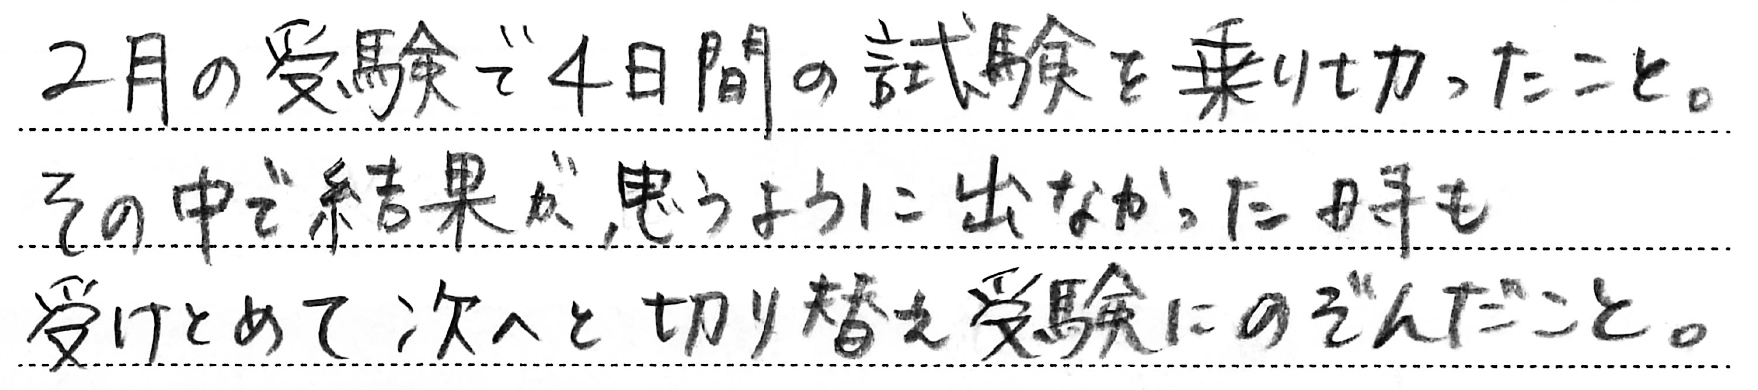 2月の受験で4日間の試験を乗り切ったこと。
その中で結果が思うように出なかった時も
受けとめて次へと切り替え受験にのぞんだこと。